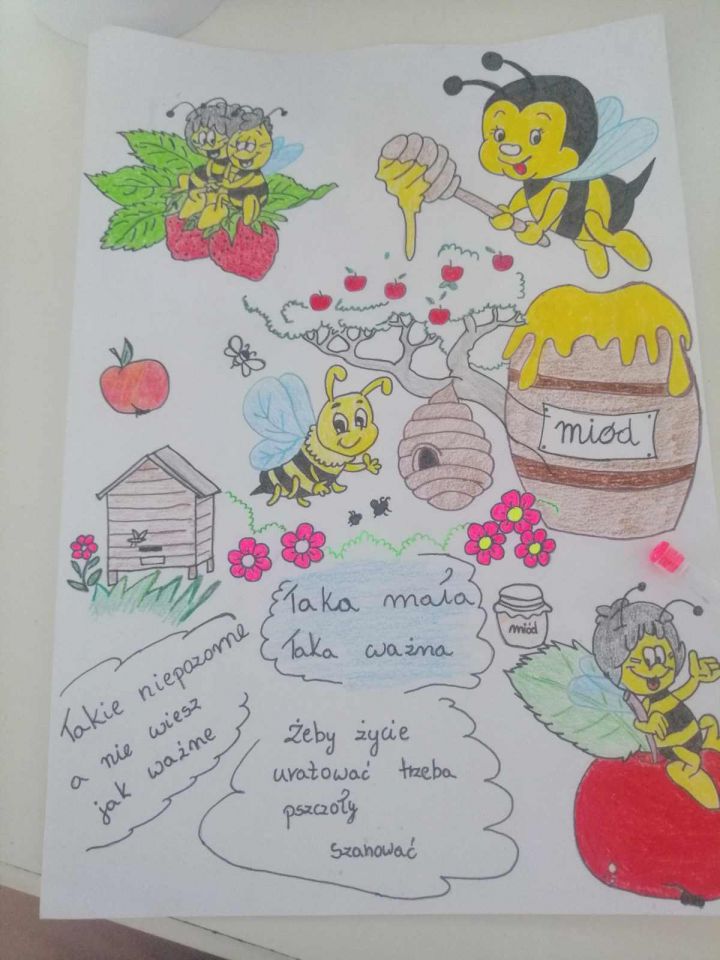 miód
Taka mała
Taka ważna
miód
Takie niepozorne
a nie wiesz
jak ważne
Żeby życie
uratować trzeba
pszczoły
szanować